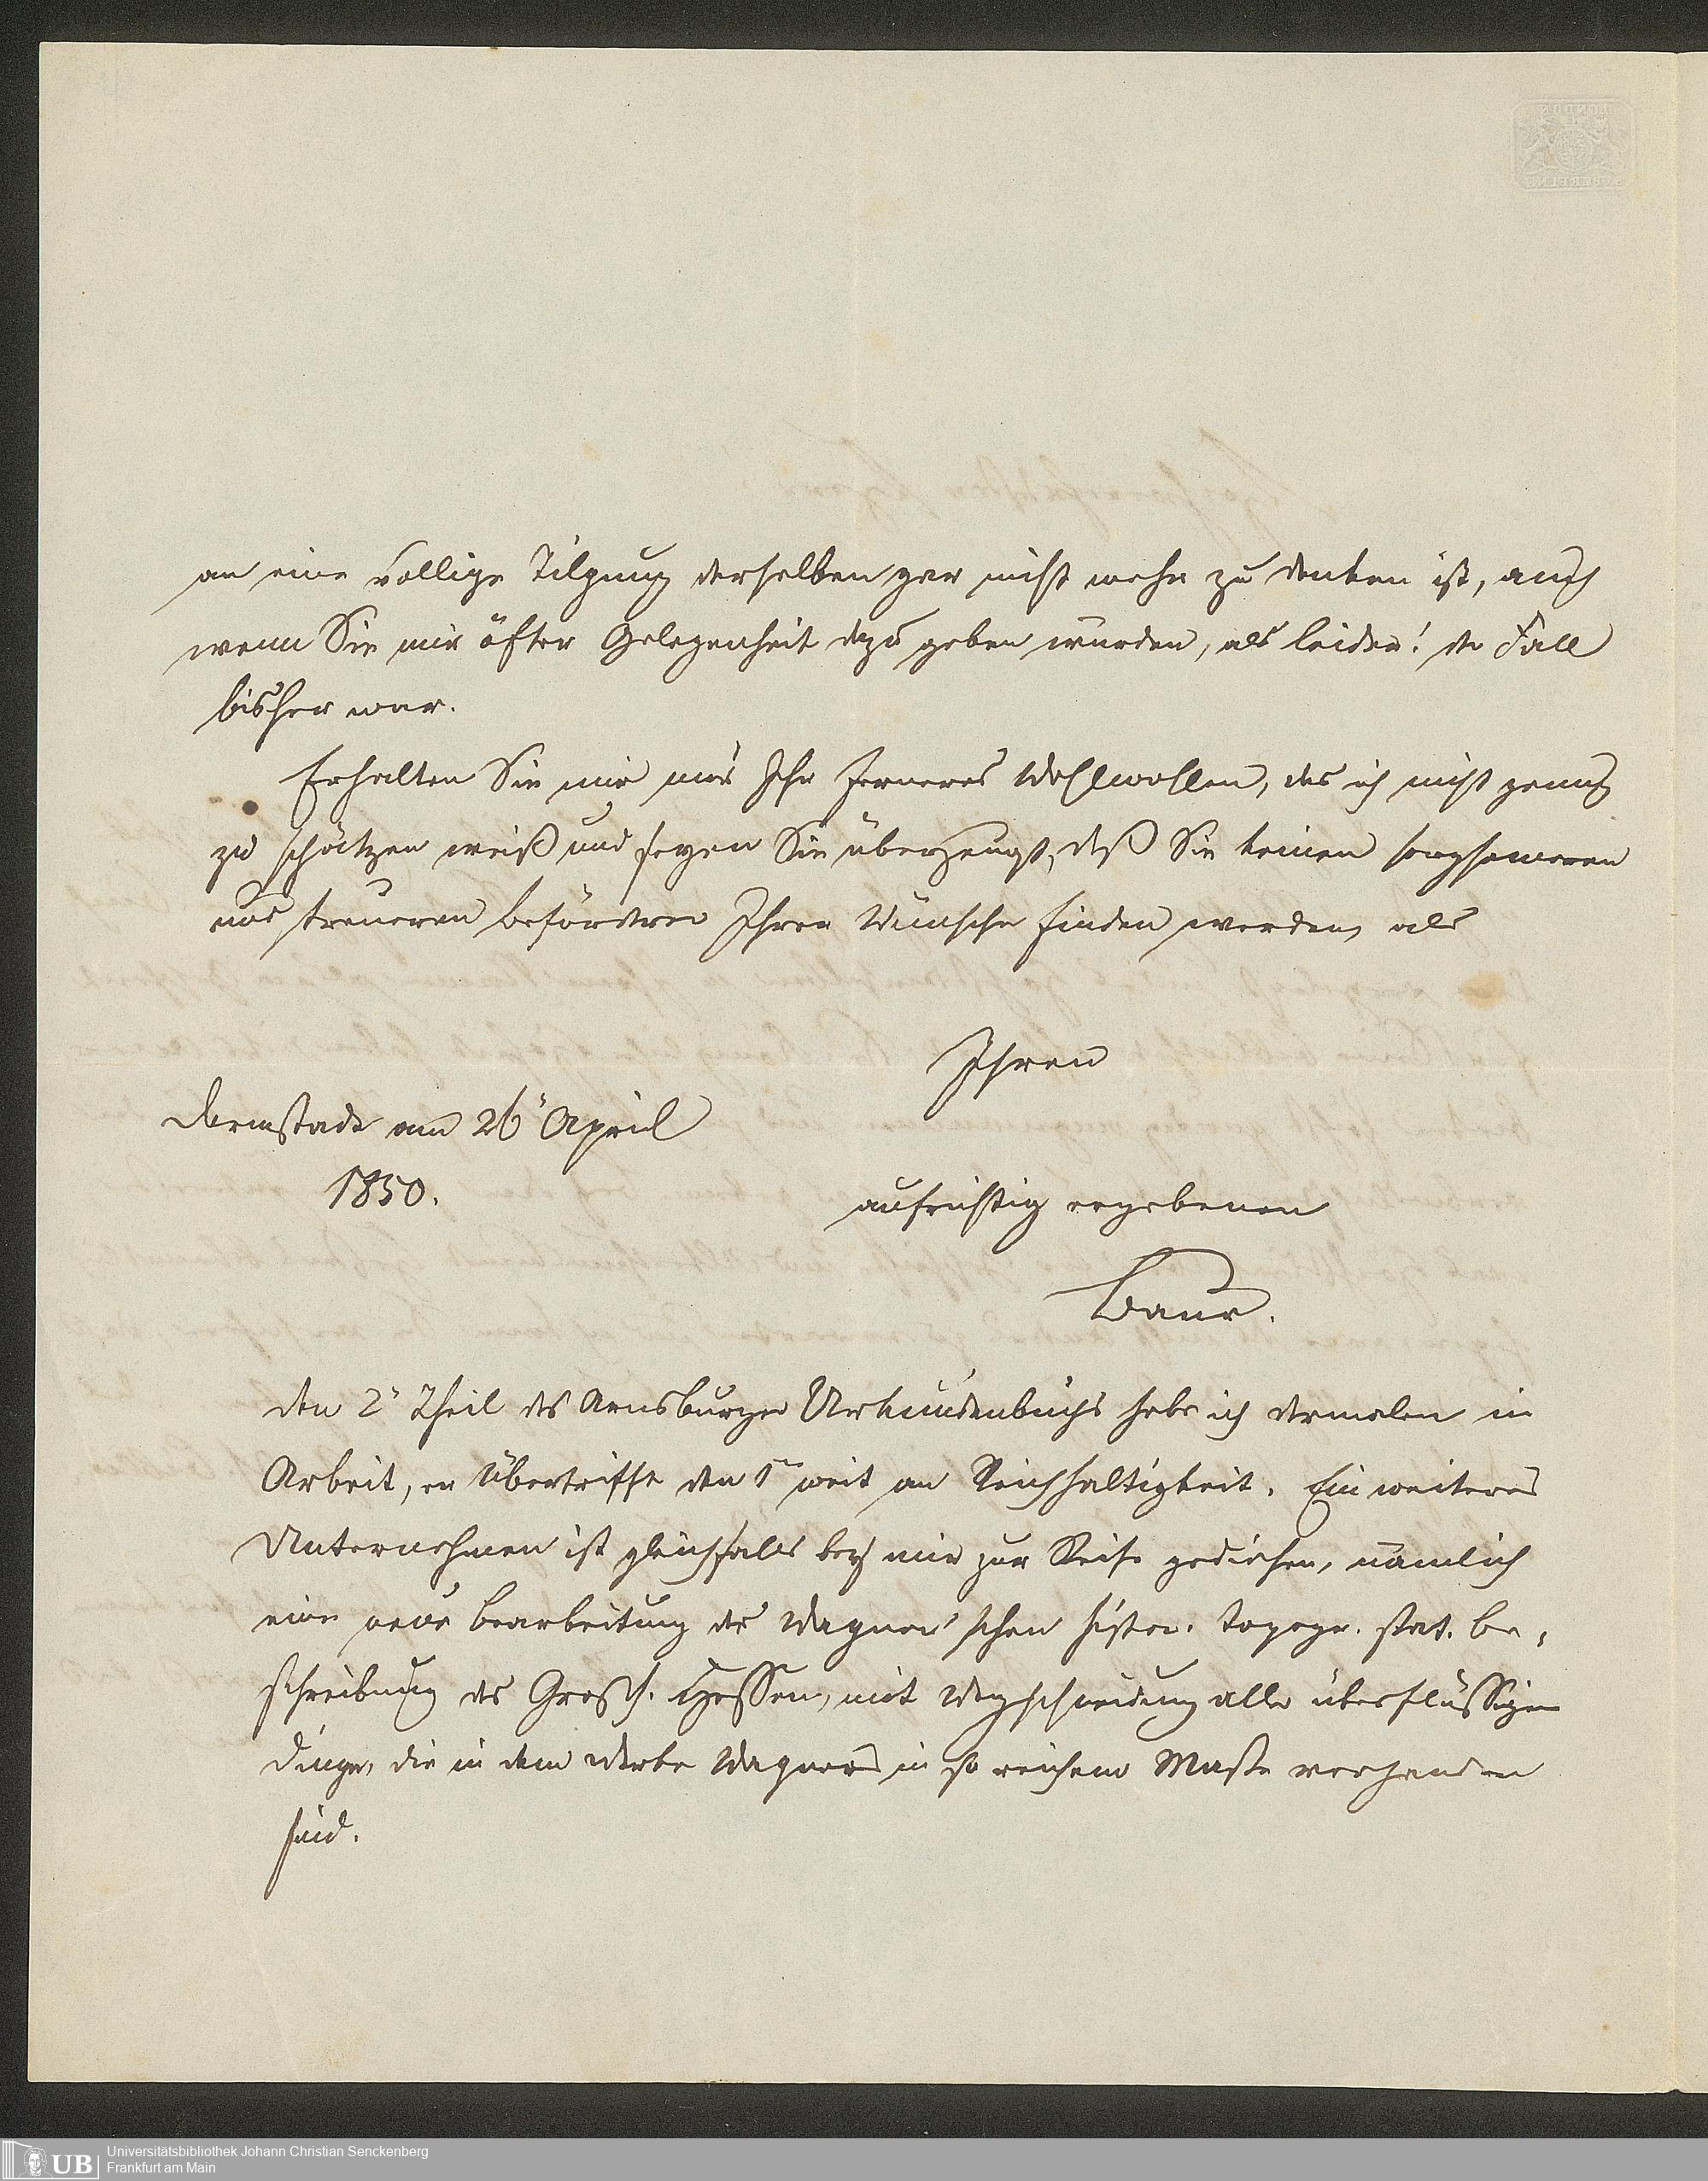 an eine völlige Tilgung derselben gar nicht mehr zu denken ist, auch
wenn Sie mir öfter Gelegenheit dazu geben würden, als leider! der Fall
bisher war.
Erhalten Sie mir nur Ihr ferneres Wohlwollen, das ich nicht genug
zu schätzen weiß und seyen Sie überzeugt, daß Sie keinen sorgsameren
und treueren Beförderer Ihrer Wünsche finden werden, als
Ihren
Darmstadt am 26n April
1850.
aufrichtig ergebenen
Baur.
Den 2n Theil des Arnsburger Urkundenbuchs habe ich dermalen in
Arbeit, er übertrifft den 1ten weit an Reichhaltigkeit. Ein weiteres
Unternehmen ist gleichfalls bey mir zur Reife gediehen, nämlich
eine neue Bearbeitung der Wagner'schen histor. topogr. stat. Be-
schreibung des Großh. Hessen, mit Wegschneidung aller überflüssigen
Dinge, die in dem Werke Wagners in so reichem Maße vorhanden
sind.
UB
Universitätsbibliothek Johann Christian Senckenberg
Frankfurt am Main